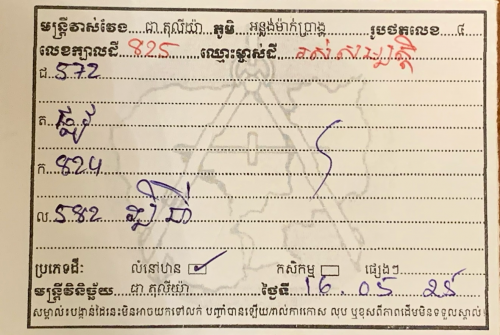 មន្ត្រីវាស់វែង ជា តុលីយ៉ា ភូមិ អន្លង់ម៉ាក់ប្រាង្គ រូបថតលេខ ៨
លេខក្បាលដី 825 ឈ្មោះម្ចាស់ដី
ជ. 572
ត. ផ្លូវ
ក. 824
ល. 582
ប្រភេទដី៖ លំនៅឋាន ✓ កសិកម្ម ផ្សេងៗ
មន្ត្រីវិនិច្ឆ័យ ជា តុលីយ៉ា ថ្ងៃទី 16. 05
សម្គាល់៖បង្កាន់ដៃនេះមិនអាចយកទៅលក់ បញ្ចាំបានឡើយ រាល់ការកោស លុប ឬខុសពីភាពដើមមិនទទួលស្គាល់